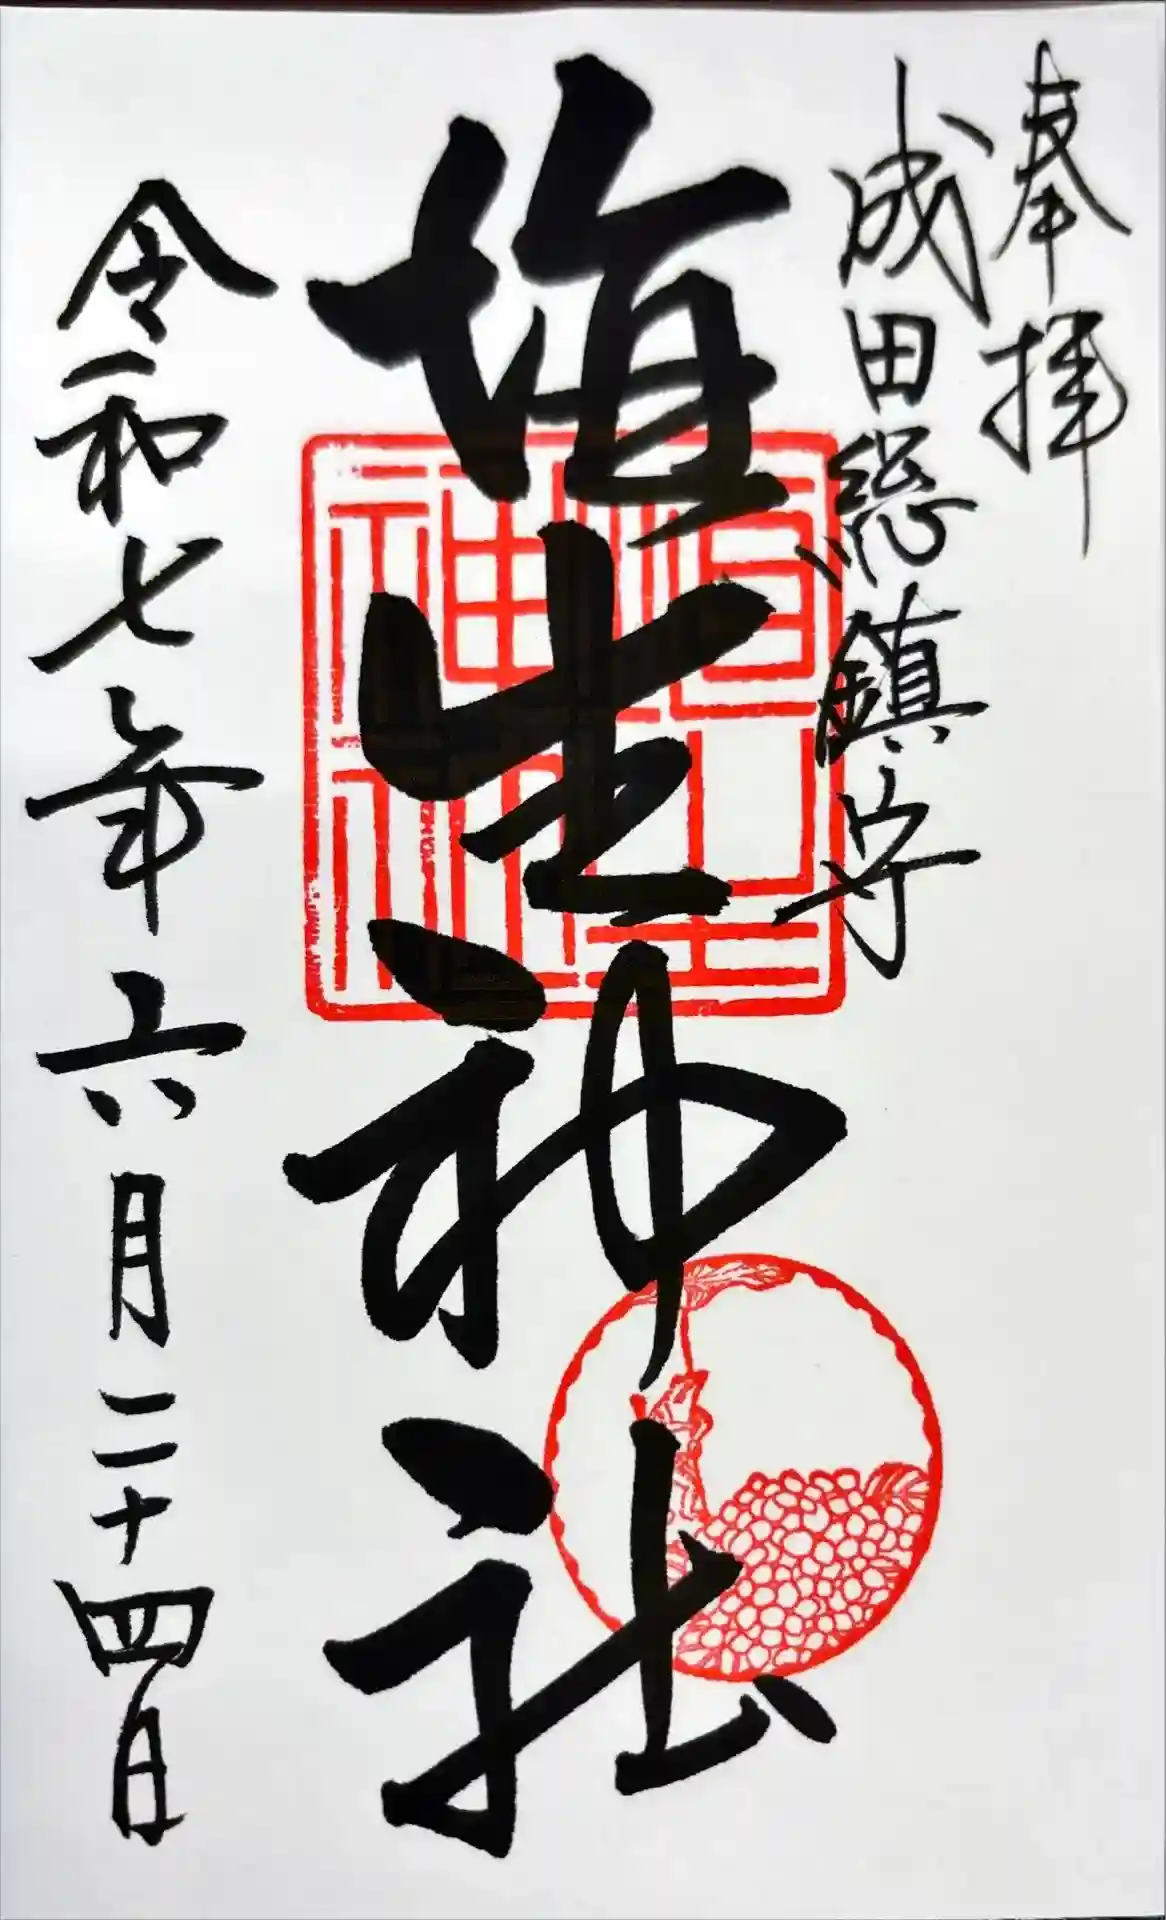 奉拝
成田総鎮守
埴生神社
埴生神社
令和七年六月二十四日